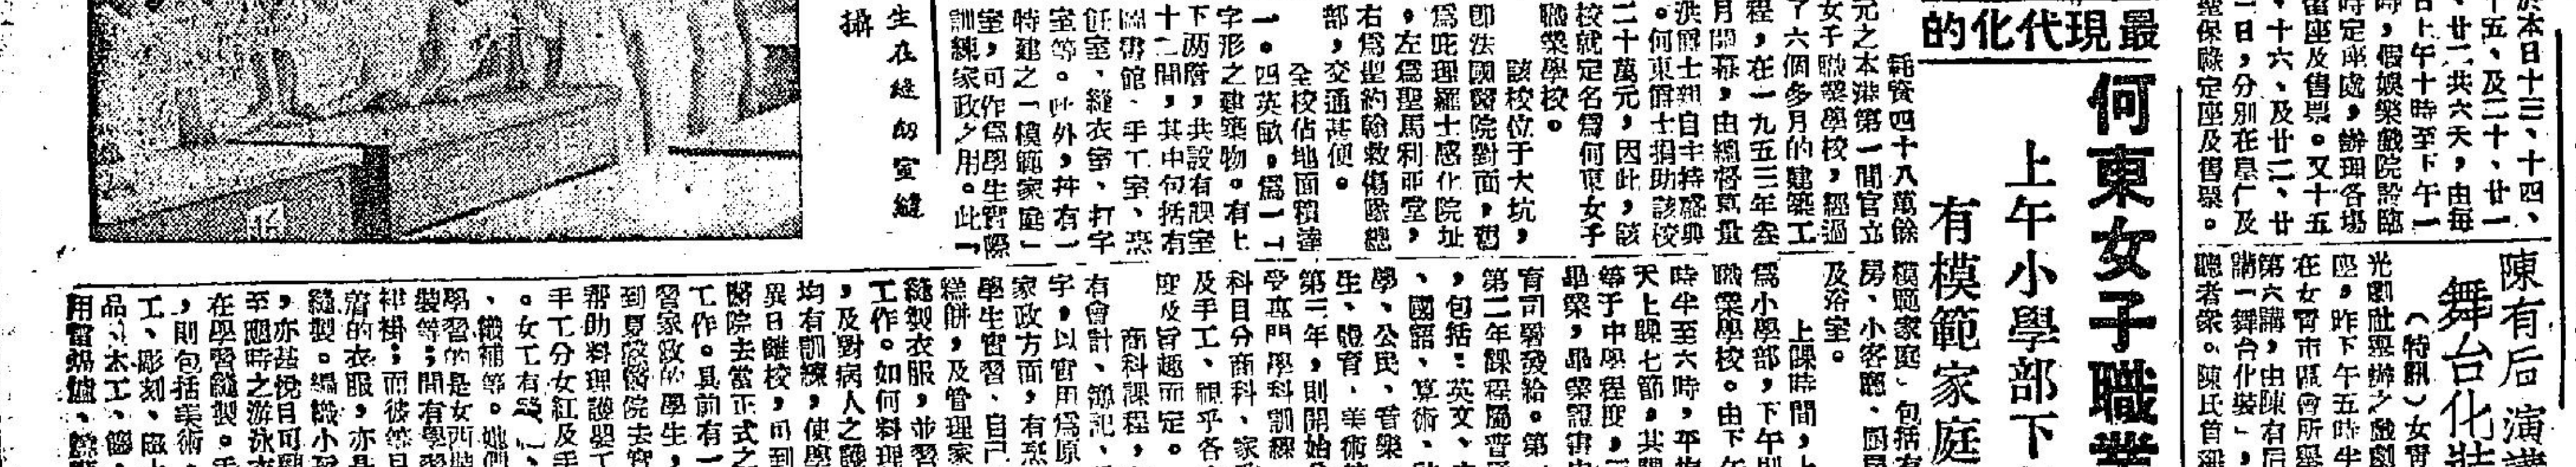 於本日十三、十四、
十五、及二十、廿一
、廿二共六天，由每
日上午十時至下午一
時，假娛樂戲院設臨
時定座處，辦理各場
留座及售票。又十五
、十六、及廿二、廿
一日，分別在皇仁及
聖保祿定座及售票。
陳有后演講
舞台化裝
（特訊）女青
光劇社舉辦之戲劇
座，昨下午五時半
在女青市區會所舉
第六講，由陳有后
講「舞台化裝」，
聽者衆。陳氏首
最現代化的
何東女子職業
上午小學部下
有模範家庭
耗資四十八萬餘
元之本港第一間官立
女子職業學校，經過
了六個多月的建築工
程，在一九五三年
月開幕，由總督葛量
洪爵士親自主持盛典
。何東爵士捐助該校
二十萬元，因此，該
校就定名爲何東女子
職業學校。
該校位于大坑，
卽法國醫院對面，舊
爲庇理羅士感化院址
，左爲聖馬利亞堂，
右爲聖約翰救傷隊總
部，交通甚便。
全校佔地面積達
一。四英畝。爲一「
字形之建築物。有上
下两層，共設有課室
十二間，其中包括有
圖書館、手工室、烹
飪室、縫衣室、打字
室等。此外，并有一
特建之「模範家庭」
室，可作爲學生實際
訓練家政之用。此「
模範家庭」包括有
房、小客廳、廚房
及浴室。
上課時間，上
爲小學部，下午則
職業學校。由下午
時半至六時，平均
天上課七節，其
等于中學程度，三
畢業，畢業證書由
育司署發給。第
第二年課程屬普通
，包括：英文、
、國語、算術、
學、公民、音樂
生、體育、美術
第三年，則開始
受專門學科訓練
科目分商科、家
及手工、視乎各
度及旨趣而定。
商科課程，
有會計、簿記、
字，以實用爲原
家政方面，有烹
學生實習、自己
糕餅，及管理家
縫製衣服，並習
工作。如何料理
，及對病人之護
均有訓練，使學
異日離校，可到
醫院去當正式之
工作。具前有一
習家政的學生，
到夏 醫院去實
帮助料理護嬰工
手工分女紅及手
。女工有 、
、織補等。她們
學習的是女西裝
裝等；間有學習
衫褂；而彼等日
着的衣服，亦是
縫製。編織小
，亦甚悅目可
至應時之游泳
在學習縫製。手
，則包括美術
工、彫刻、
品、木工、
用電焗爐、
生在縫紉室縫
攝